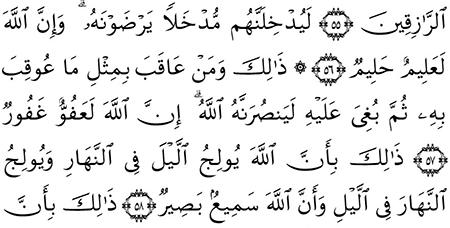 ٱلرَّٰزِقِينَ ۝٥٥ لَيُدْخِلَنَّهُم مُّدْخَلًا يَرْضَوْنَهُۥۗ وَإِنَّ ٱللَّهَ
لَعَلِيمٌ حَلِيمٌ ۝٥٦ ۞ ذَٰلِكَ وَمَنْ عَاقَبَ بِمِثْلِ مَا عُوقِبَ
بِهِۦ ثُمَّ بُغِيَ عَلَيْهِ لَيَنصُرَنَّهُ ٱللَّهُۗ إِنَّ ٱللَّهَ لَعَفُوٌّ غَفُورٌ
۝٥٧ ذَٰلِكَ بِأَنَّ ٱللَّهَ يُولِجُ ٱلَّيْلَ فِى ٱلنَّهَارِ وَيُولِجُ
ٱلنَّهَارَ فِى ٱلَّيْلِ وَأَنَّ ٱللَّهَ سَمِيعٌۢ بَصِيرٌ ۝٥٨ ذَٰلِكَ بِأَنَّ